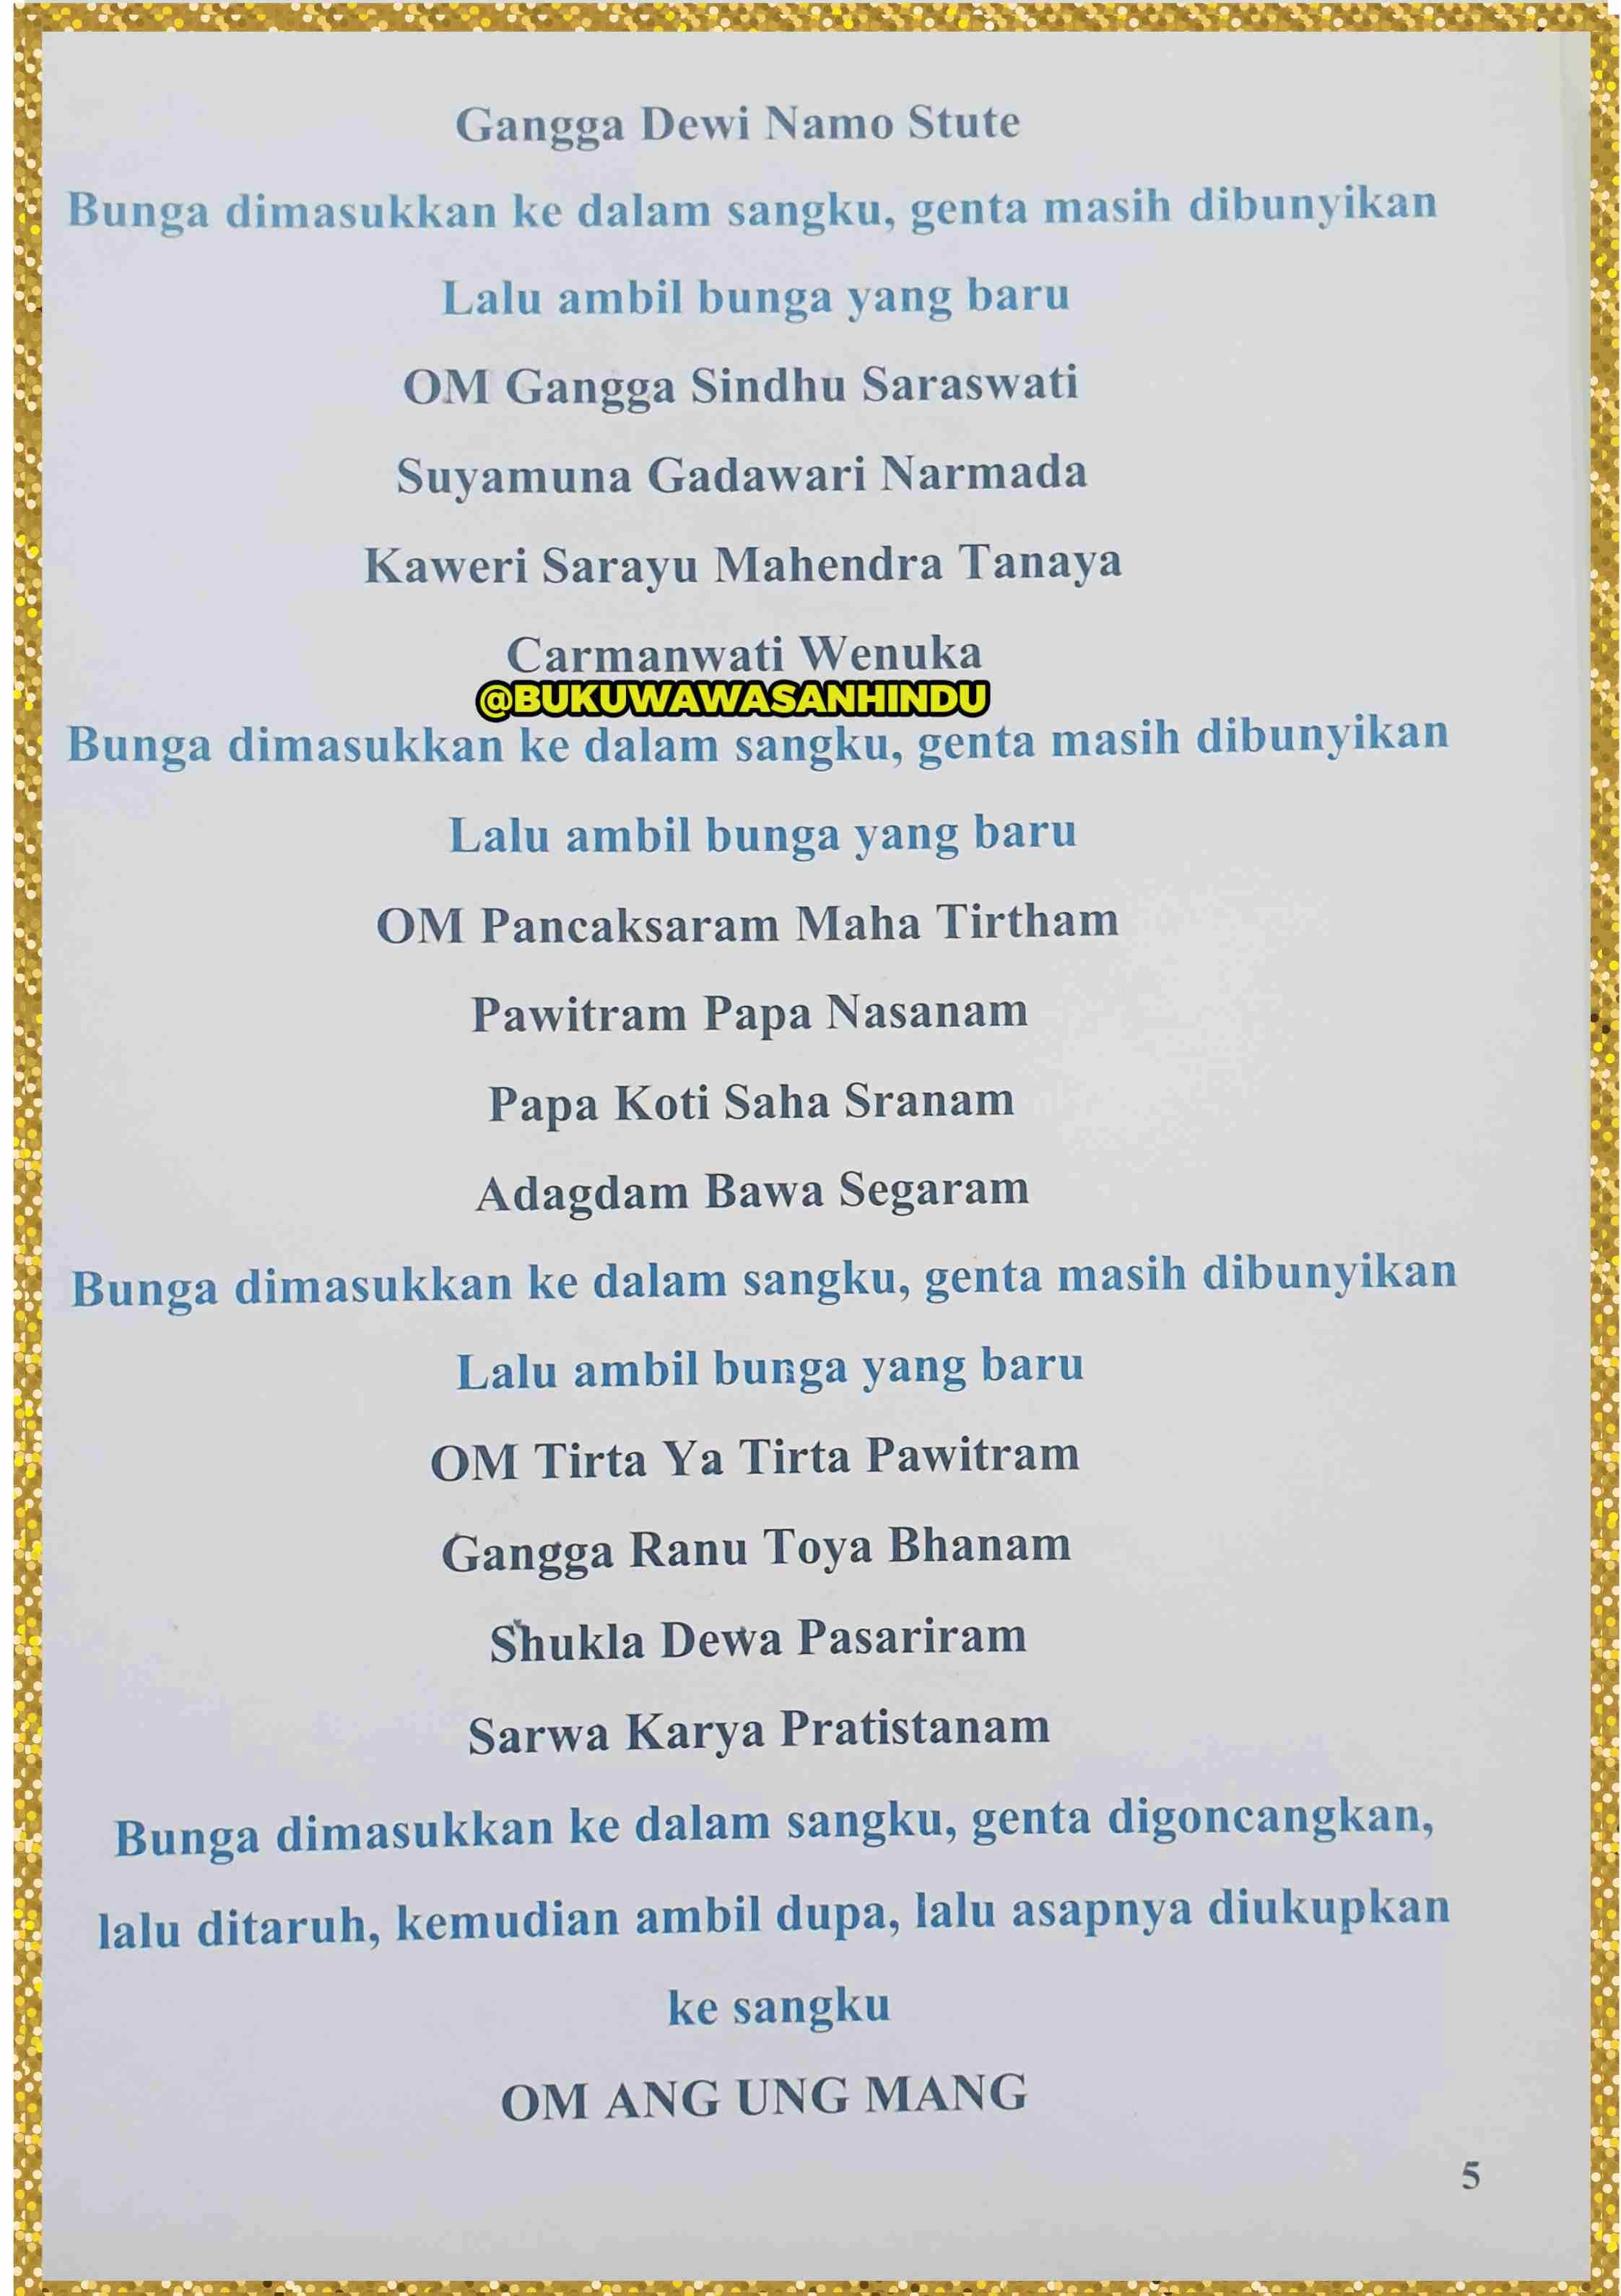 Gangga Dewi Namo Stute
Bunga dimasukkan ke dalam sangku, genta masih dibunyikan
Lalu ambil bunga yang baru
OM Gangga Sindhu Saraswati
Suyamuna Gadawari Narmada
Kaweri Sarayu Mahendra Tanaya
Carmanwati Wenuka
@BUKUWAWASANHINDU
Bunga dimasukkan ke dalam sangku, genta masih dibunyikan
Lalu ambil bunga yang baru
OM Pancaksaram Maha Tirtham
Pawitram Papa Nasanam
Papa Koti Saha Sranam
Adagdam Bawa Segaram
Bunga dimasukkan ke dalam sangku, genta masih dibunyikan
Lalu ambil bunga yang baru
OM Tirta Ya Tirta Pawitram
Gangga Ranu Toya Bhanam
Shukla Dewa Pasariram
Sarwa Karya Pratistanam
Bunga dimasukkan ke dalam sangku, genta digoncangkan,
lalu ditaruh, kemudian ambil dupa, lalu asapnya diukupkan
ke sangku
OM ANG UNG MANG
5